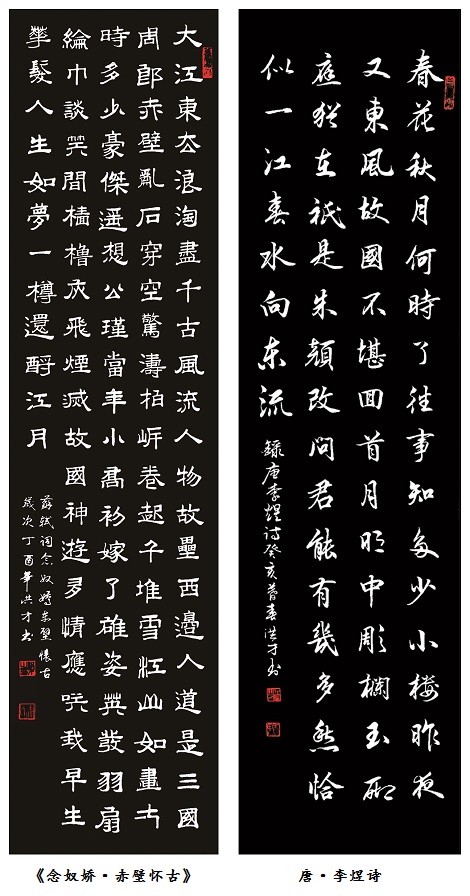 大江東去浪淘盡千古風流人物故壘西邊人道是三國
周郎赤壁亂石穿空驚濤拍岸卷起千堆雪江山如畫
時多少豪傑遥想公瑾當年小喬初嫁了雄姿英發羽扇
綸巾談笑間檣櫓灰飛煙滅故國神遊多情應笑我早生
華髮人生如夢一樽還酹江月
蘇軾詞念奴嬌赤壁懷古
歲次丁酉華洪才书
春花秋月何時了往事知多少小樓昨夜
又東風故國不堪回首月明中彫欄玉砌
應猶在祇是朱顏改問君能有幾多愁恰
似一江春水向东流
録唐李煜詩癸亥暮春洪才书
《念奴娇·赤壁怀古》
唐·李煜诗